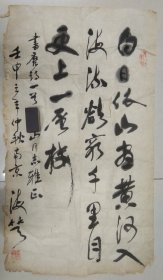 白日依山尽黄河入
海流欲穷千里目
更上一层楼
书唐诗一首
山月志雅正
壬申之年仲秋南京